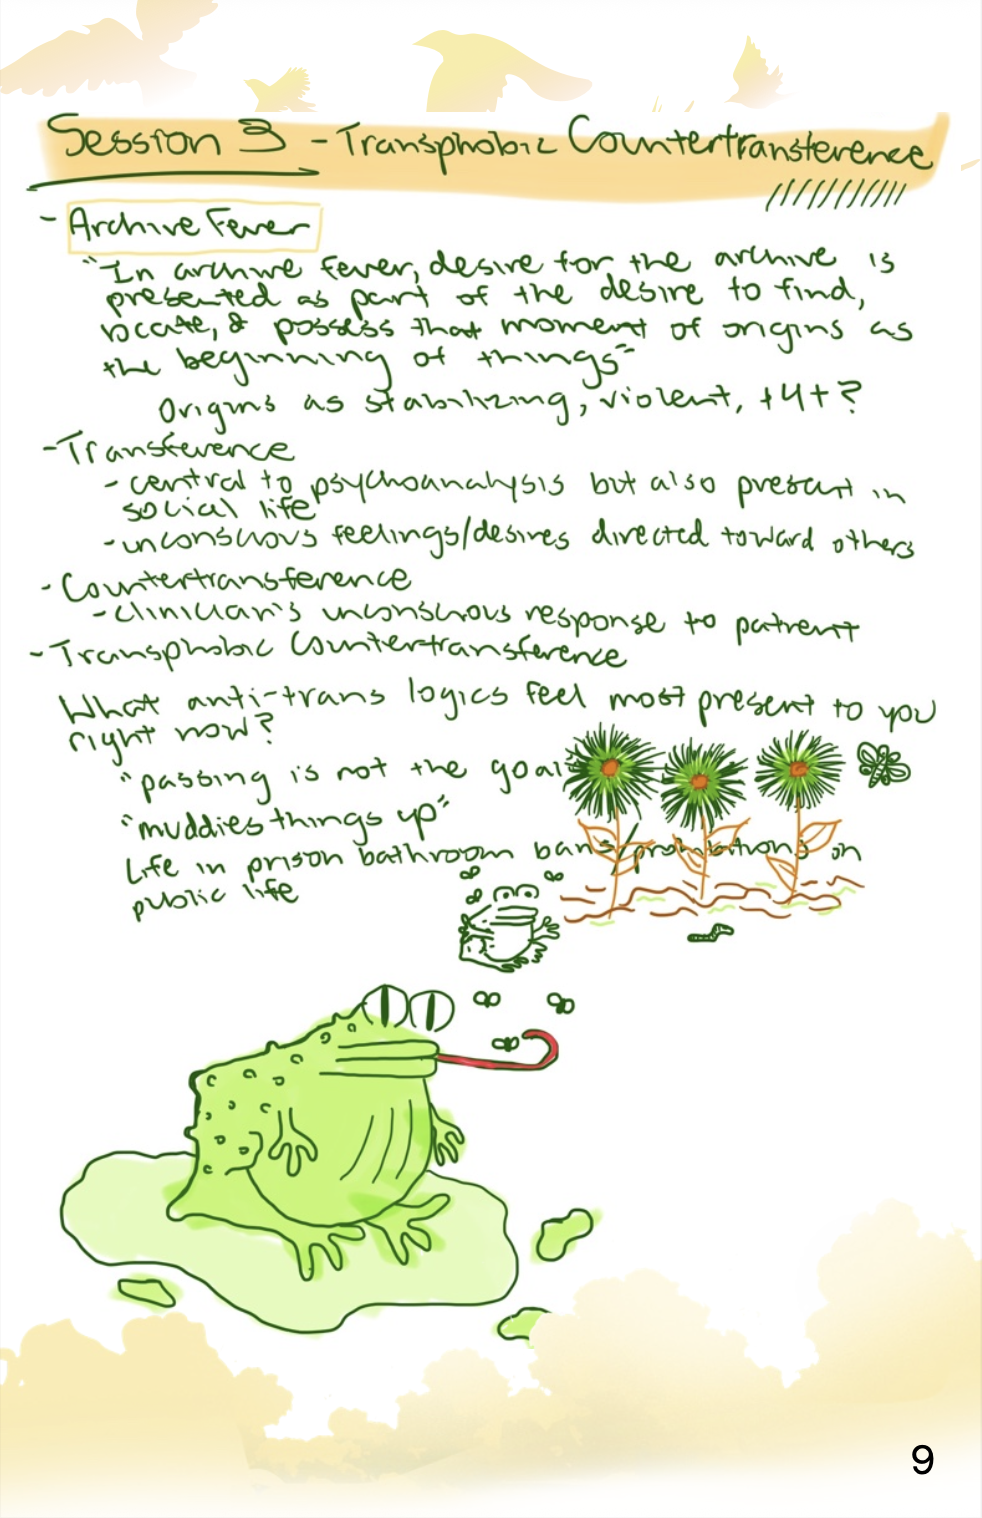 Session 3 - Transphobic Countertransference
- Archive Fever
"In archive fever, desire for the archive is
presented as part of the desire to find,
locate, & possess that moment of origins as
the beginning of things"
Origins as stabilizing, violent, +4+?
- Transference
- central to psychoanalysis but also present in
social life
- unconscious feelings/desires directed toward others
- Countertransference
- clinician's unconscious response to patient
- Transphobic Countertransference
What anti-trans logics feel most present to you
right now?
"passing is not the goal"
"muddies things up"
Life in prison bathroom bans/prohibitions on
public life
9